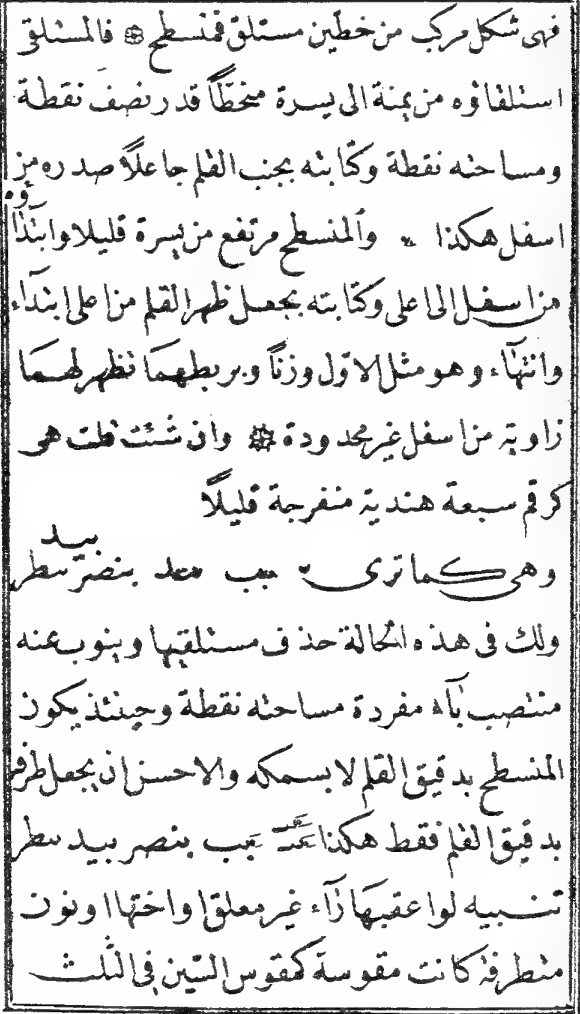 فهى شكل مركب من خطين مستلق فمنسطح ۞ فالمستلقى
استلقاؤه من يمنة الى يسرة منحطاً قدر نصف نقطة
ومساحته نقطة وكتابته بجنب القلم جاعلاً صدره من
اسفل هكذا والمنسطح مرتفع من يسرة قليلا وابتداؤه
من اسفل الى اعلى وكتابته بجعل ظهر القلم من اعلى ابتدآء
وانتهآء وهو مثل الاول وزناً وبربطهما تظهر لهما
زاوية من اسفل غير محدودة ۞ وان شئت قلت هى
كرقم سبعة هندية منفرجة قليلاً
وهى كما ترى ببنصر بيد سطر
ولك فى هذه الحالة حذف مستلقيها وينوب عنه
منتصب بآء مفردة مساحته نقطة وحينئذ يكون
المنسطح بدقيق القلم لا بسمكه والاحسن ان يجعل طرفه
بدقيق القلم فقط هكذا بنصر بيد سطر
تنبيه لو اعقبها رآء غير معلق او اختها او نون
متطرفة كانت مقوسة كمقوس السين فى الثلث